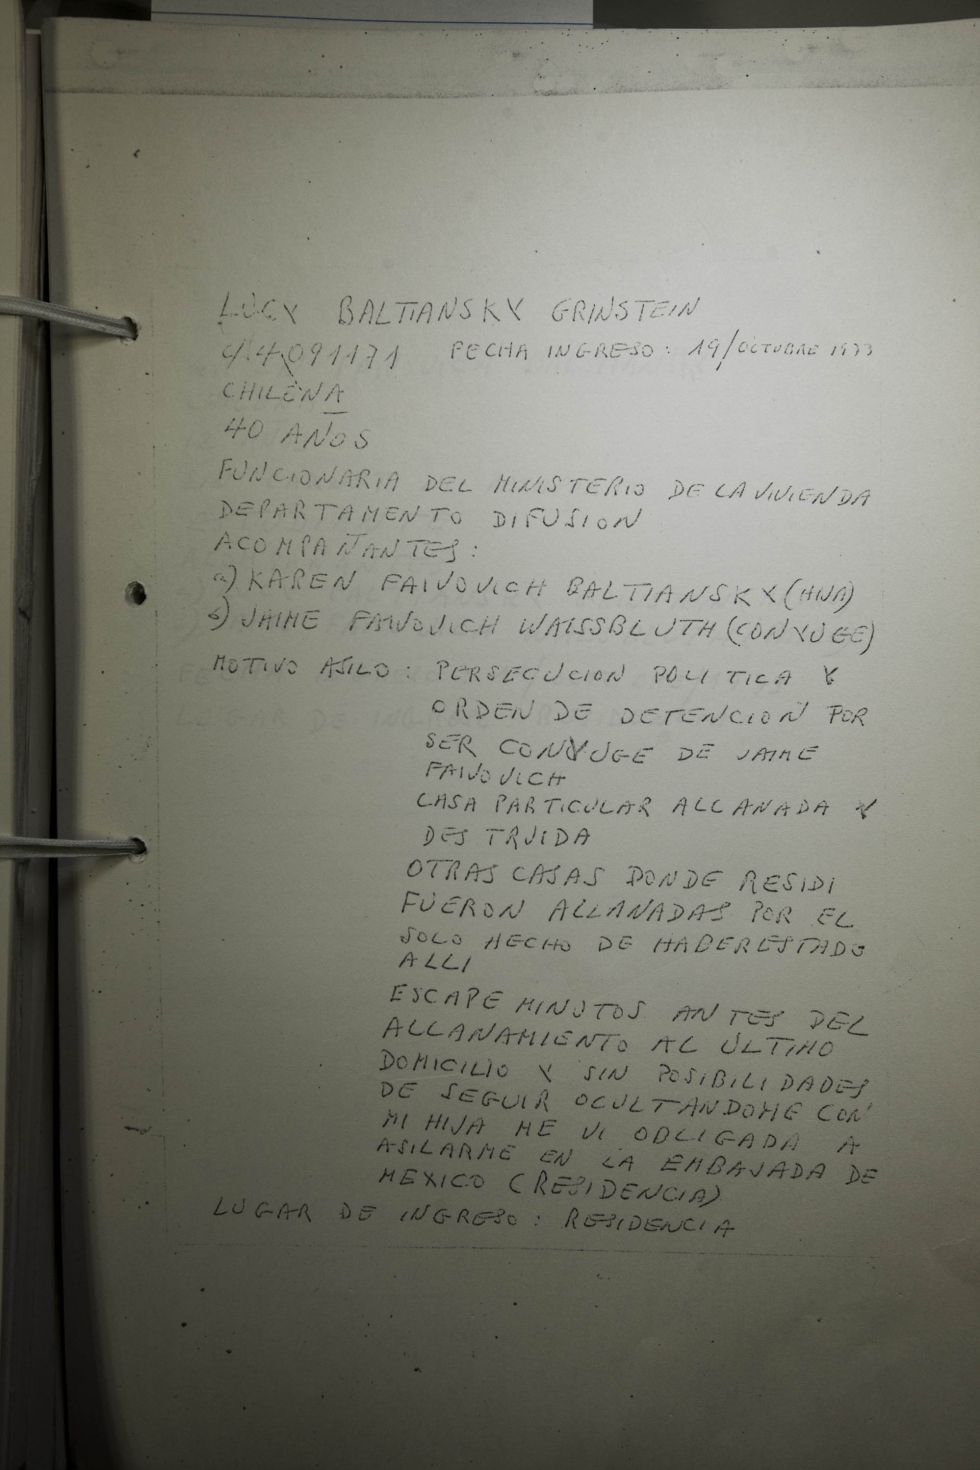 LUCY BALTIANSKY GRINSTEIN
4091171 FECHA INGRESO: 19/OCTUBRE 1973
CHILENA
40 AÑOS
FUNCIONARIA DEL MINISTERIO DE LA VIVIENDA
DEPARTAMENTO DIFUSION
ACOMPAÑANTES:
a) KAREN FAIVOVICH BALTIANSKY (HIJA)
b) JAIME FAIVOVICH WAISSBLUTH (CONYUGE)
MOTIVO ASILO: PERSECUCION POLITICA Y
ORDEN DE DETENCION POR
SER CONYUGE DE JAIME
FAIVOVICH
CASA PARTICULAR ALLANADA Y
DESTRUIDA
OTRAS CASAS DONDE RESIDI
FUERON ALLANADAS POR EL
SOLO HECHO DE HABER ESTADO
ALLI
ESCAPE MINUTOS ANTES DEL
ALLANAMIENTO AL ULTIMO
DOMICILIO Y SIN POSIBILIDADES
DE SEGUIR OCULTANDOME CON
MI HIJA ME VI OBLIGADA A
ASILARME EN LA EMBAJADA DE
MEXICO (RESIDENCIA)
LUGAR DE INGRESO: RESIDENCIA